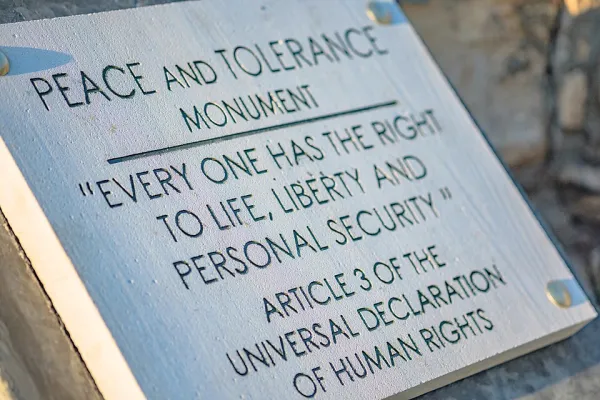 PEACE AND TOLERANCE
MONUMENT
"EVERY ONE HAS THE RIGHT
TO LIFE, LIBERTY AND
PERSONAL SECURITY"
ARTICLE 3 OF THE
UNIVERSAL DECLARATION
OF HUMAN RIGHTS